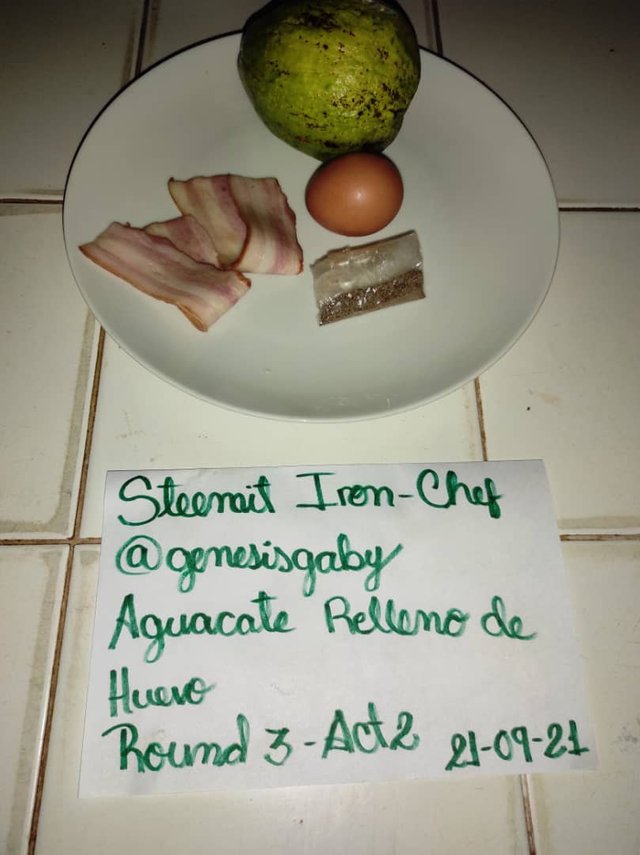 Steemit Iron-Chef
@genesisgaby
Aguacate Relleno de
Huevo
Round 3-Act2 21-09-21